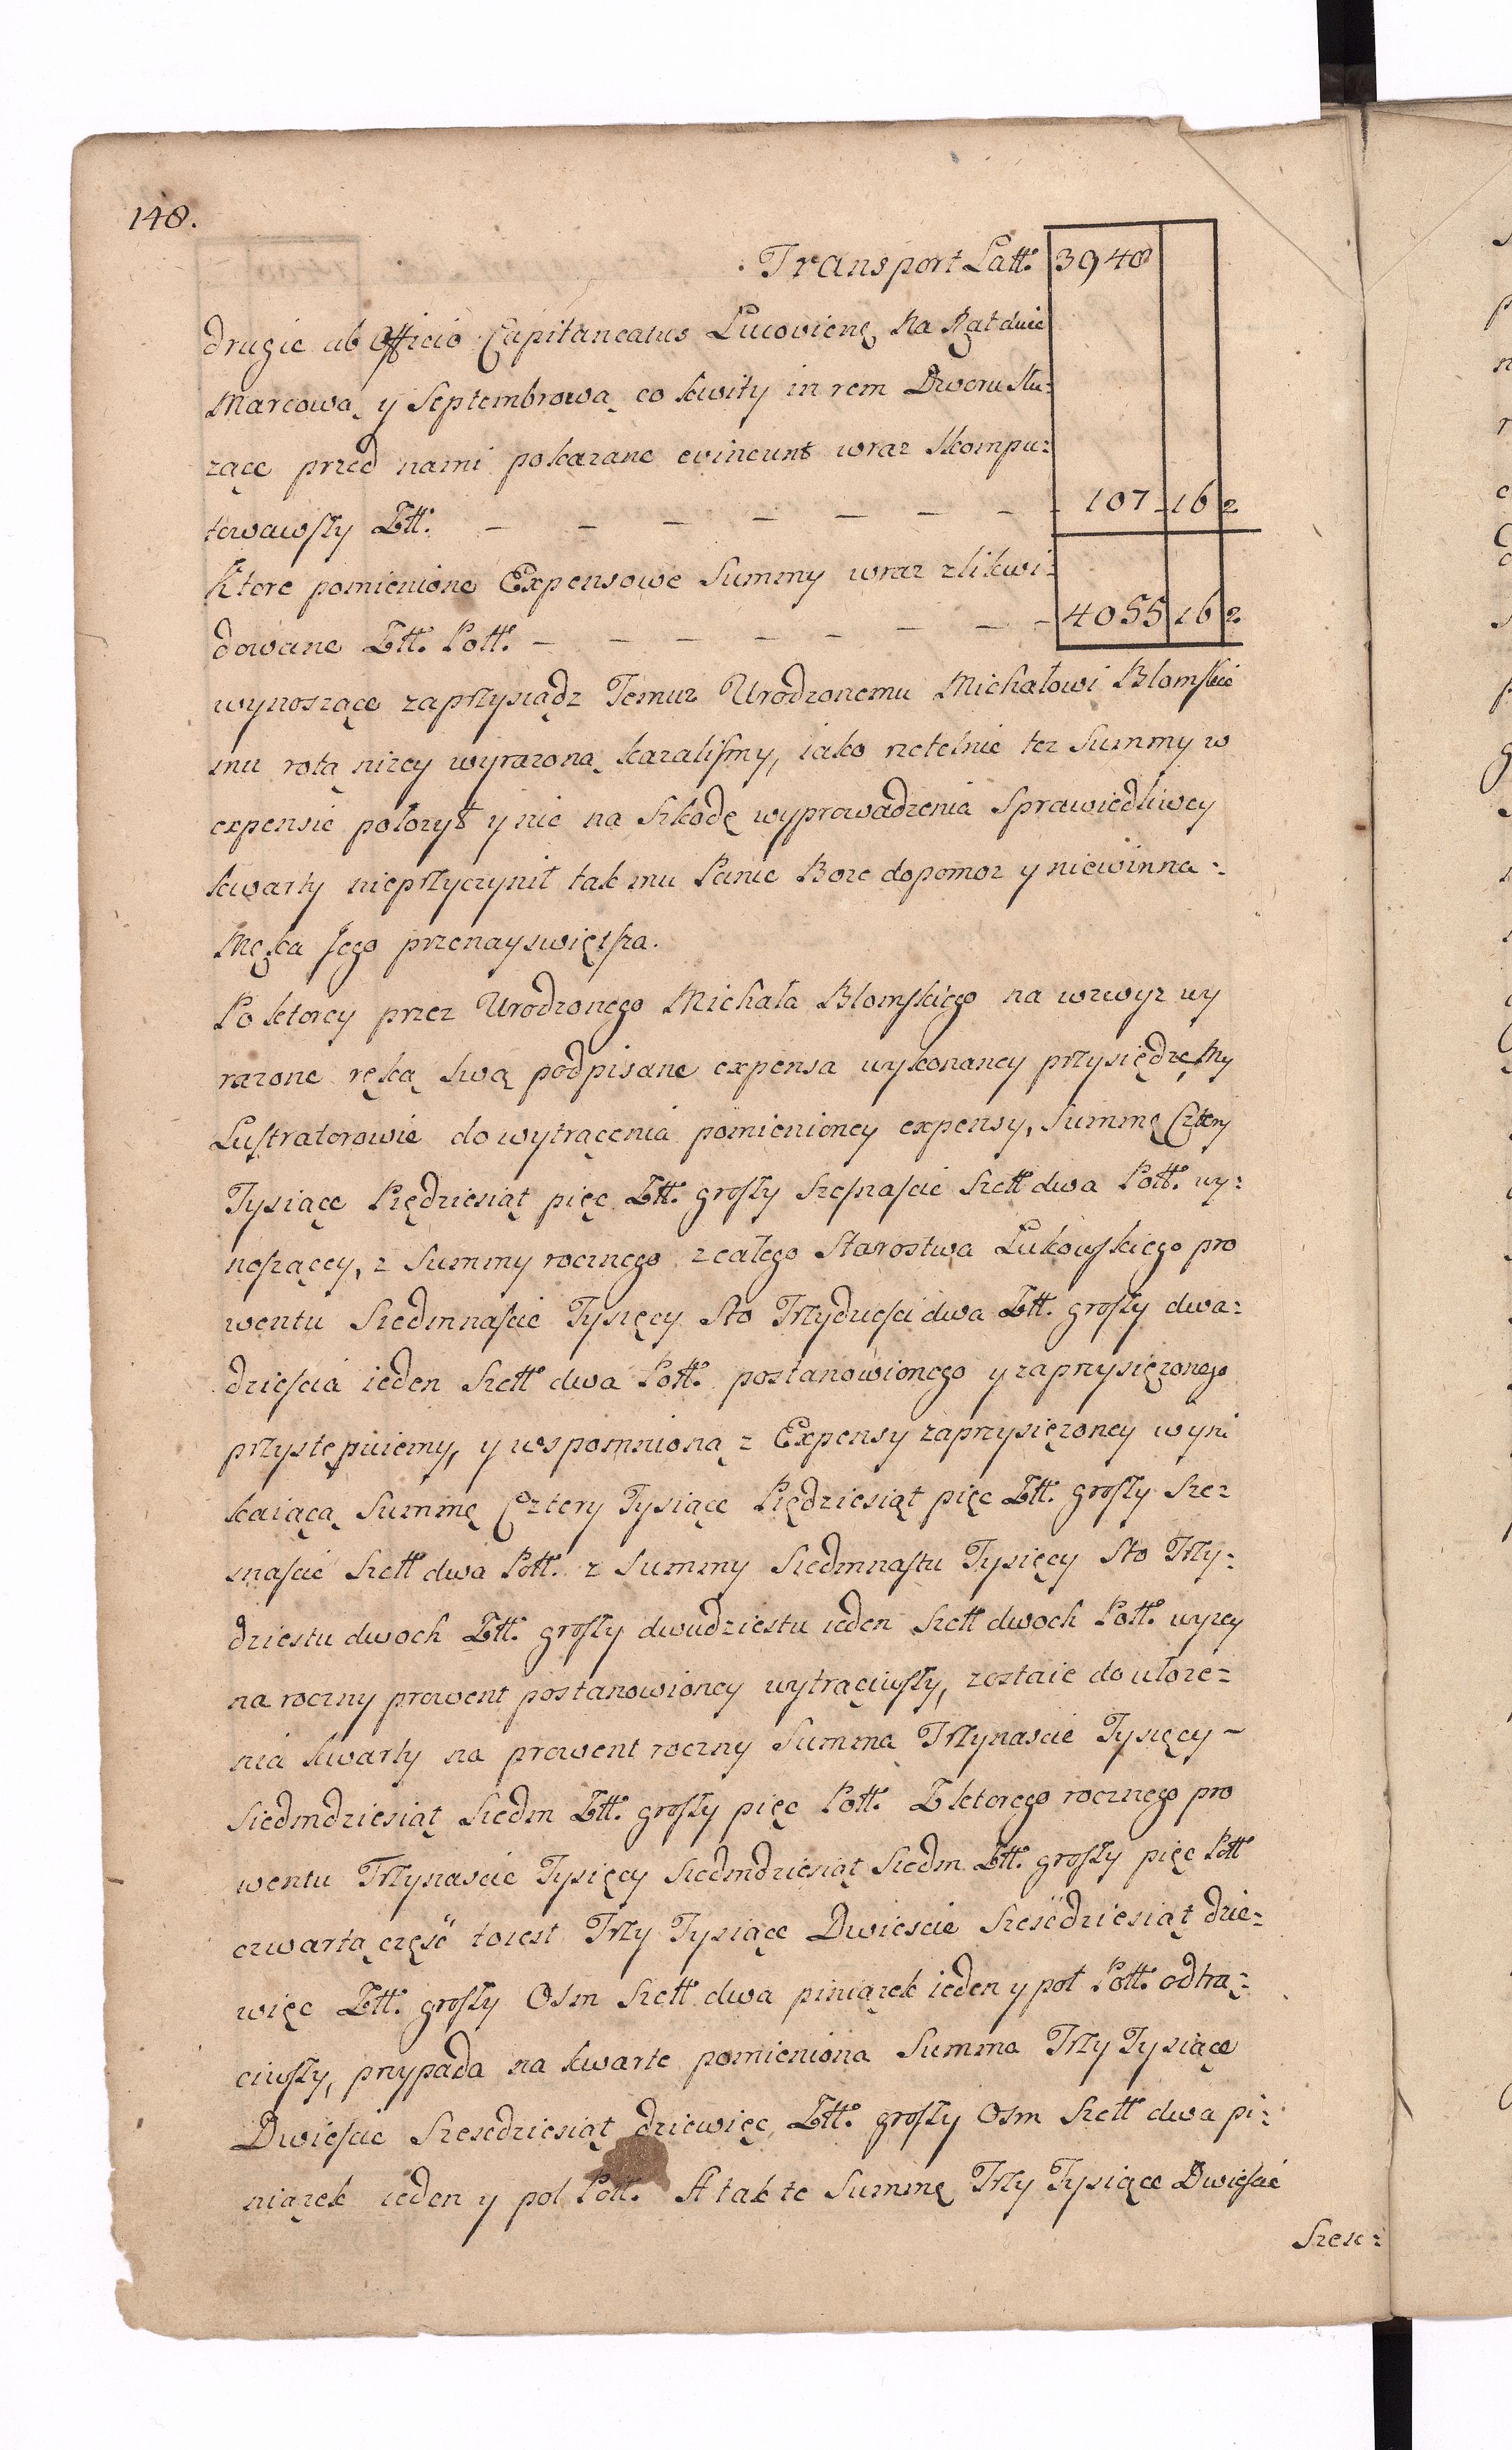 148.
Transport Latt. 3948
drugie ab Officio Capitaneatus Lucoviens, Na Ratę dwie
Marcową y Septembrową co kwity in rem Dworu słu=
zące przed nami pokazane evincunt wraz skompu=
towawszy Ztt. — — — — — — — 107 16 2
Ktore pomienione Expensowe Summy wraz zlikwi=
dowane Ztt. Pott. — — — — — — — 4055 16 2.
wynoszące zaprzysiądz Temuz Urodzonemu Michałowi Blomskie
mu rotą nizey wyrazoną kazaliśmy, iako rzetelnie tez Summy w
expensie połozył y nic na Szkodę wyprowadzenia Sprawiedliwey
kwarty nieprzyczynił tak mu Panie Boze dopomoz y niewinna=
Męka Jego przenayswiętsza.
Po ktorey przez Urodzonego Michała Blomskiego na wzwyz wy
razone ręką swą podpisane expensa wykonaney przysiędze, My
Lustratorowie do wytrącenia pomienioney expensy, Summę Cztery
Tysiące Piędziesiąt pięc Ztt. groszy Szesnascie Szelł dwa Pott. wy=
noszącey, z Summy rocznego z całego Starostwa Lukowskiego pro
wentu Siedmnascie Tysięcy Sto Trzydziesci dwa Ztt. groszy dwa=
dziescia ieden Szelł dwa Pott. postanowionego y zaprzysięzonego
przystępuiemy, y wspomnioną z Expensy zaprzysięzoney wyni
kaiącą Summę Cztery Tysiące Piędziesiąt pięc Ztt. groszy Sze=
snascie Szelł dwa Pott. z Summy Siedmnastu Tysięcy Sto Trzy=
dziestu dwoch Ztt. groszy dwudziestu ieden Szelł dwoch Pott. wyzey
na roczny prowent postanowioney wytrąciwszy, zostaie do ułoze=
nia kwarty na prowent roczny Summa Trzynascie Tysięcy -
Siedmdziesiąt Siedm Ztt. groszy pięc Pott. Z ktorego rocznego pro
wentu Trzynascie Tysięcy Siedmdziesiąt Siedm Ztt. groszy pięc Pott
czwartą częsc toiest Trzy Tysiące Dwiescie Szescdziesiąt dzie=
więc Ztt. groszy Osm Szelł dwa piniązek ieden y poł Pott. odtrą=
ciwszy, przypada na kwarte pomieniona Summa Trzy Tysiące
Dwiescie Szescdziesiąt dziewięc Ztt. groszy Osm Szelł dwa pi=
niązek ieden y pol Pott. A tak te Summę Trzy Tysiące Dwiescie
Szesc=